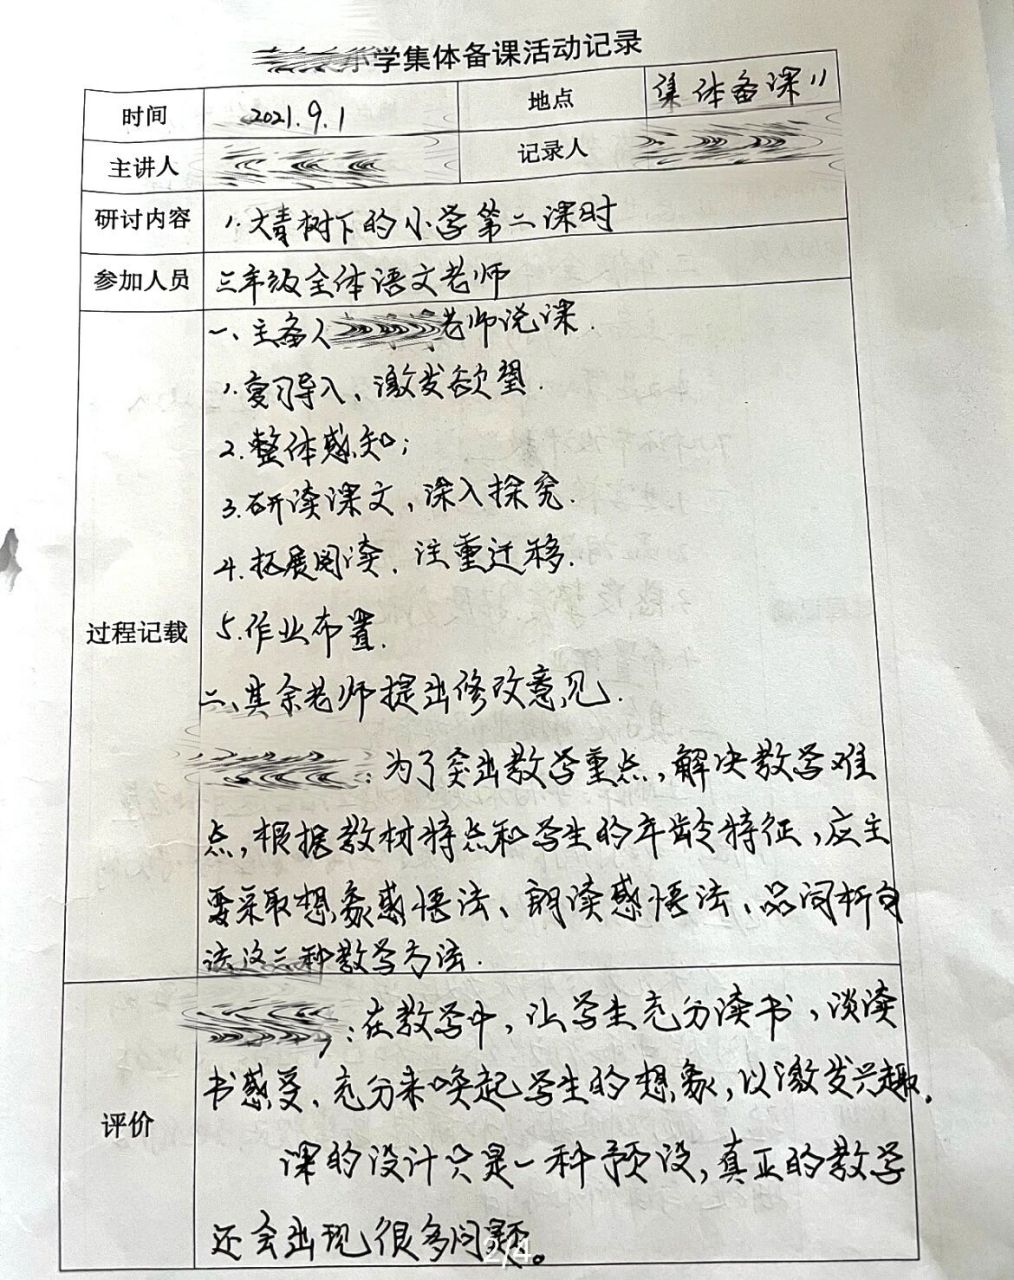 小学集体备课活动记录
时间 2021.9.1 地点 集体备课11
主讲人 记录人
研讨内容 1.大青树下的小学第二课时
参加人员 三年级全体语文老师
过程记载
一、主备人 老师说课.
1.复习导入、激发欲望.
2.整体感知;
3.研读课文,深入探究.
4.拓展阅读、注重迁移.
5.作业布置.
二、其余老师提出修改意见.
:为了突出教学重点,解决教学难
点,根据教材特点和学生的年龄特征,应主
要采取想象感悟法、朗读感悟法、品词析句
法这三种教学方法.
评价
:在教学中,让学生充分读书,谈读
书感受、充分来唤起学生的想象,以激发兴趣。
课的设计只是一种预设,真正的教学
还会出现很多问题。
2/4